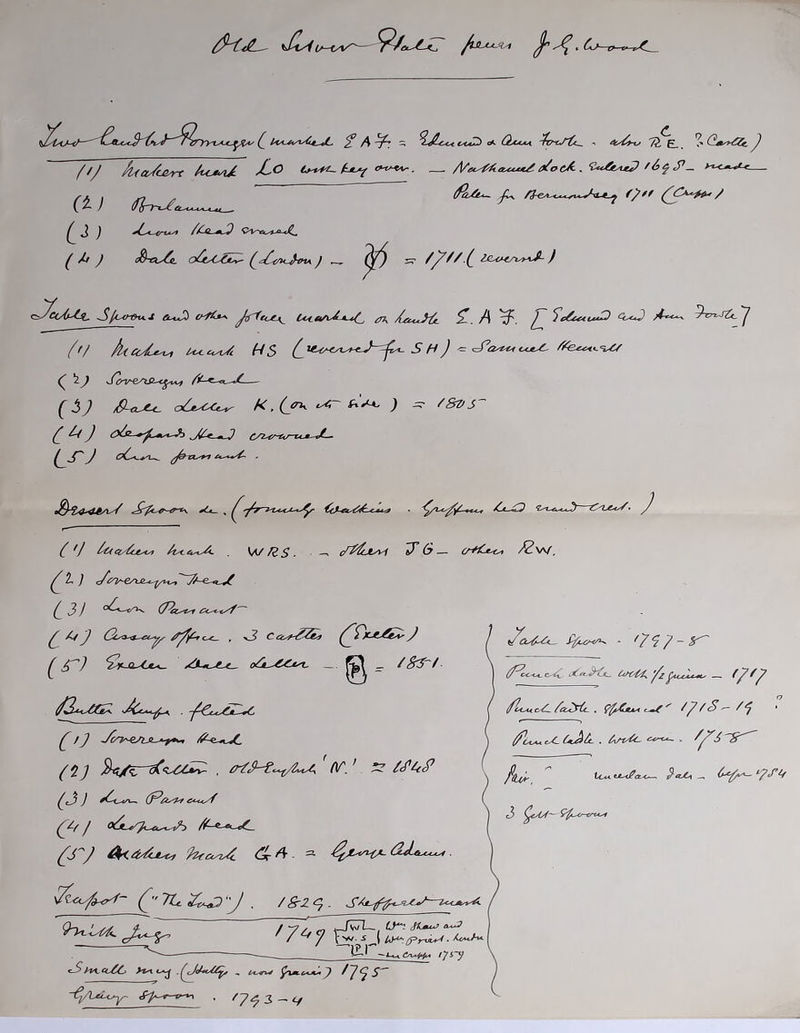 Old Silver Plate penes J.G. Wood
Two-handled Porringer (marked E A F. = Edmund & Ann Fowle - also R E. ? Castle)
(1) Makers mark LO with key over. — Nathanael Lock. Entered 1698 — made
(2) Britannia
(3) Lions Head erased
(4) Date letter (London) — = 1711. (reversed)
Table Spoons and other plate marked, on handle E. A F. [Edmund and Ann Fowle]
(1) Makers mark HS (reversed for SH) = Samuel Hennell
(2) Sovereigns Head
(3) Date letter K. (on its side) = 1805
(4) Leopard's Head crowned
(5) Lion passant.
Dessert Spoon &c. (formerly Watkins. Griffins head erased crest.)
(1) Makers Mark. WRS. — others JG — others RW.
(2) Sovereign's Head
(3) Lion Passant
(4) Assay Office, 3 castles (Exeter)
(5) Exeter Date letter — = 1851.
Butter Knife. fluted
(1) Sovereigns Head
(2) Date Letter, old English 'N.' = 1848
(3) Lion Passant
(4) Leopard's Head
(5) Makers Mark GA. = George Adams.
Teapot ("The Toad"). 1829. Sheffield mark
Milk Jug 1749 W.S WP Wm. Shaw and Wm. Priest. London
Cripps 1757
Small mug. 1795
Gravy Spoon. 1793-4
Table Spoon - 1797-8
Punch Ladle with ½ guinea — 1717
Punch Ladle. 1718-19 ?
Punch Ladle. with 1758
Pair, — before 1784
3 Spoons